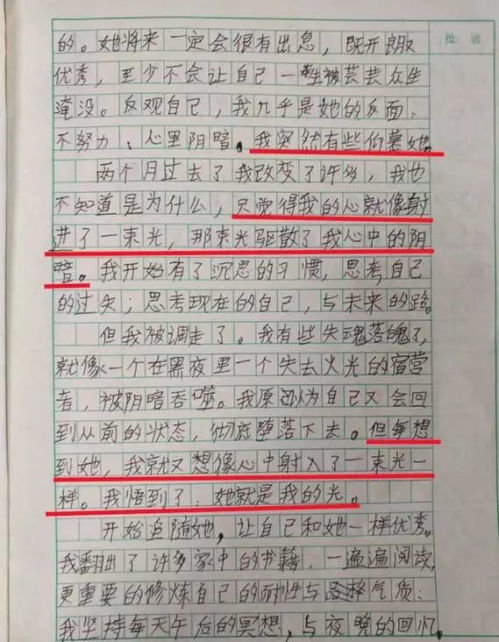 批 语
的。她将来一定会很有出息，既开朗又
优秀，至少不会让自己一生被芸芸众生
淹没。反观自己，我几乎是她的反面：
不努力、心里阴暗。我突然有些仰慕她。
两个月过去了我改变了许多，我也
不知道是为什么，只觉得我的心就像射
进了一束光，那束光驱散了我心中的阴
暗。我开始有了沉思的习惯，思考自己
的过失；思考现在的自己，与未来的路。
但我被调走了。我有些失魂落魄了，
就像一个在黑夜里一个失去火光的宿营
者，被阴暗吞噬。我原以为自己又会回
到从前的状态，彻底堕落下去。但每想
到她，我就又想像心中射入了一束光一
样。我悟到了：她就是我的光。
开始追随她，让自己和她一样优秀。
我翻出了许多家中的书籍，一遍遍阅读，
更重要的修炼自己的耐性与气质：
我坚持每天午后的冥想，与夜晚的回忆，